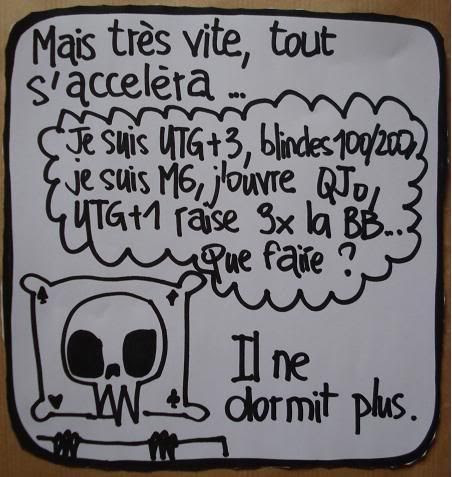 Mais très vite, tout
s'accelèra ...
Je suis UTG+3, blindes 100/200,
je suis M6, j'ouvre QJo,
UTG+1 raise 3x la BB...
Que faire ?
Il ne
dormit plus.